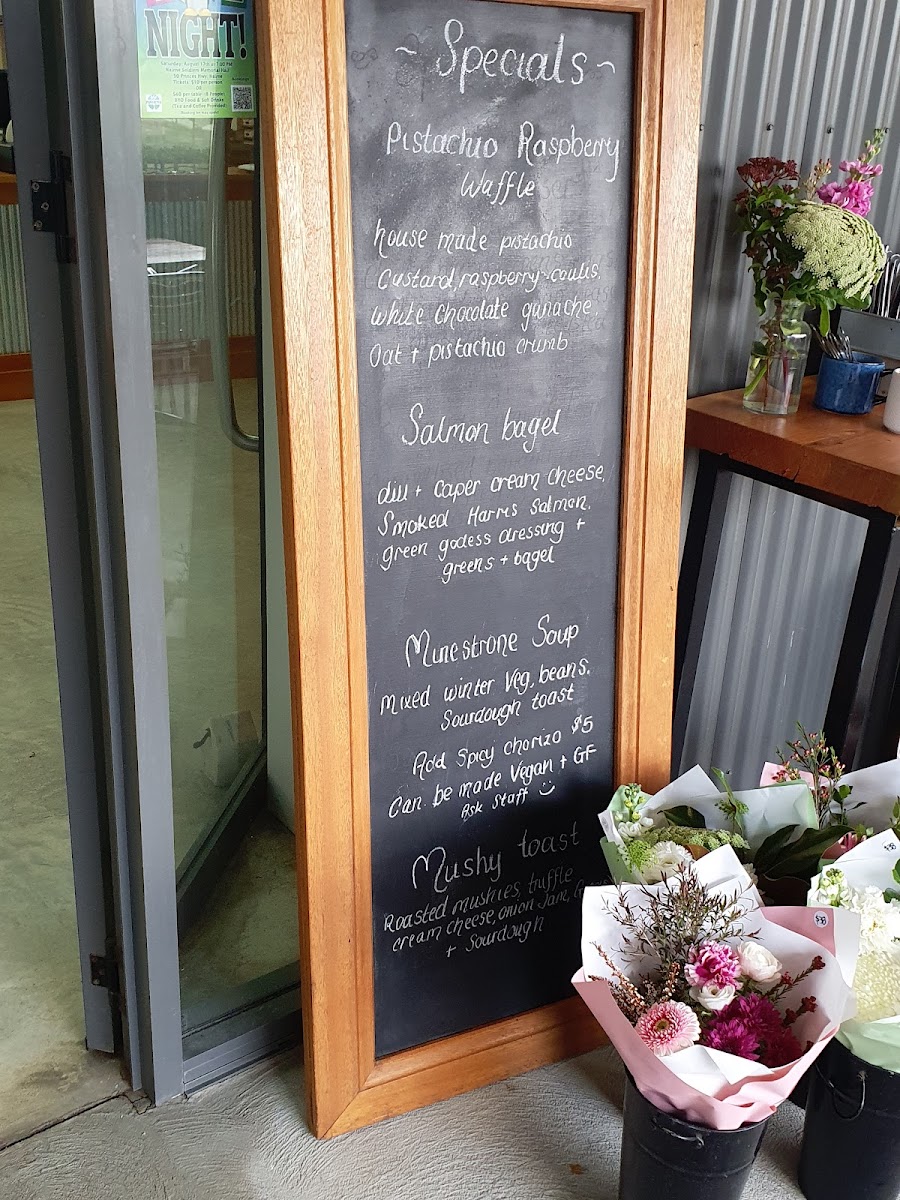 NIGHT!
Saturday August 17th at 7.00 PM
~ Specials ~
Pistachio Raspberry
Waffle
house made pistachio
Custard, raspberry coulis,
White Chocolate ganache,
Oat + pistachio crumb
Salmon bagel
dill + Caper cream cheese,
Smoked Harris Salmon,
green godess dressing +
greens + bagel
Minestrone Soup
Mixed winter Veg, beans,
Sourdough toast
Add Spicy chorizo $5
Can be made Vegan + GF
Ask Staff
Mushy toast
Roasted mushies, truffle
cream cheese, onion Jam,
+ Sourdough